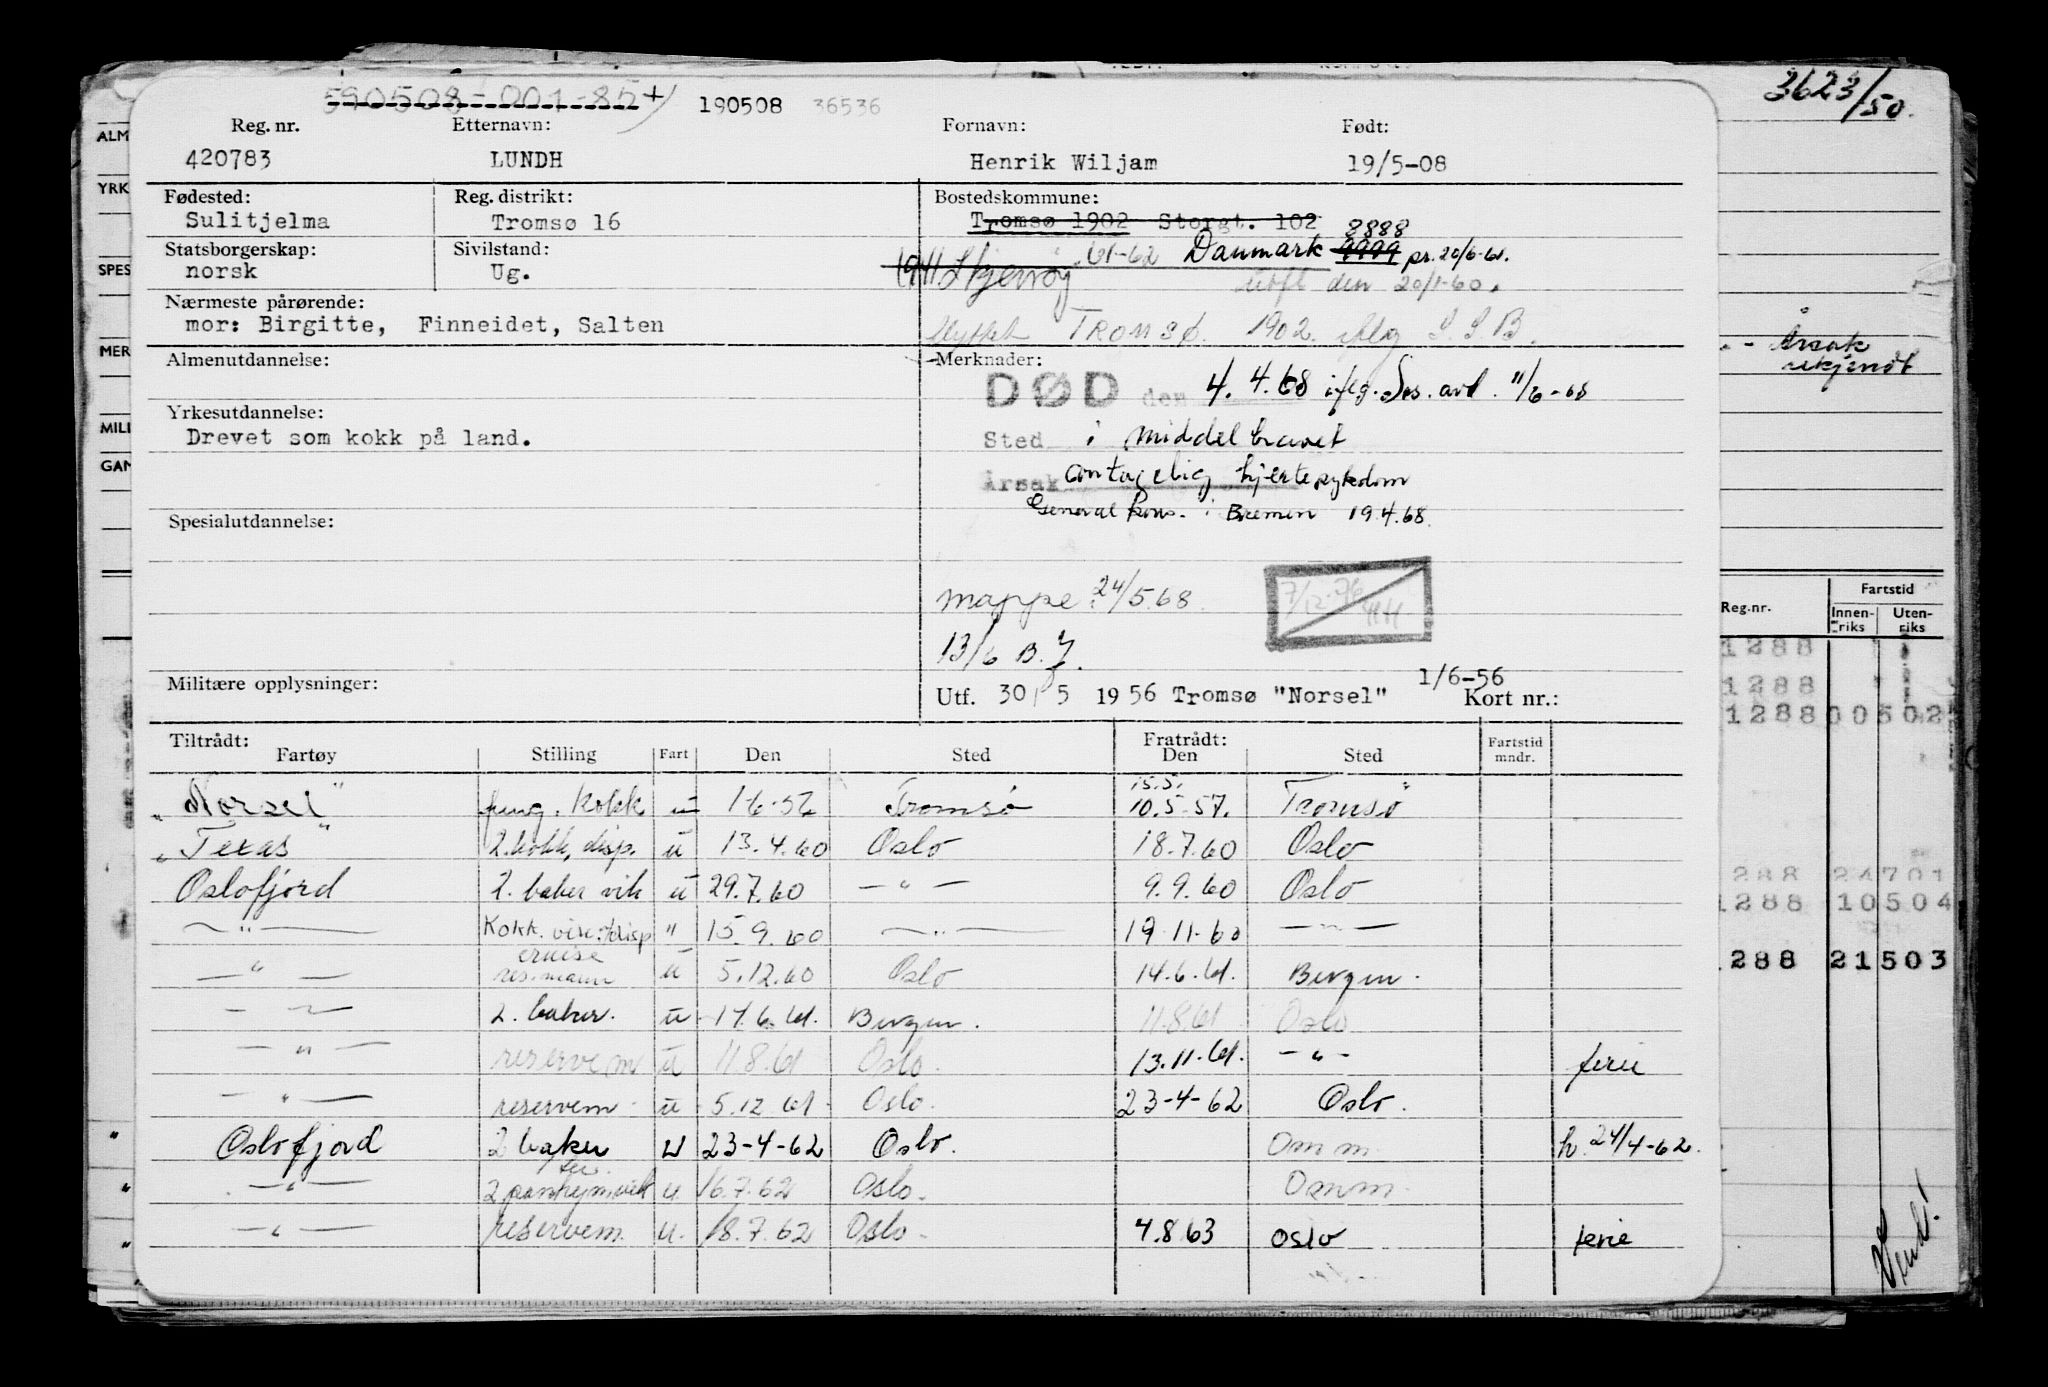 590508-001-85 +) 190508 36536
Reg. nr. Etternavn: Fornavn: Født:
420783 LUNDH Henrik Wiljam 19/5-08
Fødested: Reg. distrikt: Bostedskommune:
Sulitjelma Tromsø 16 Tromsø 1902 Storgt. 102
8888
Statsborgerskap: Sivilstand:
norsk Ug.
1941 Skjervøy 61-62 Danmark 9999 pr. 20/6-61.
den 20/1-60.
Nærmeste pårørende:
mor: Birgitte, Finneidet, Salten
Tromsø 1902 iflg S.S.B.
Almenutdannelse: Merknader:
DØD den 4.4.68 iflg. Ses. avd. 11/6-68
Yrkesutdannelse:
Drevet som kokk på land.
Sted i middelhavet
Årsak antagelig hjertesykdom
General Kons. i Bremen 19.4.68.
Spesialutdannelse:
mappe 24/5.68
7/12-76
13/6 B.J.
Militære opplysninger:
1/6-56
Utf. 30/5 1956 Tromsø "Norsel" Kort nr.:
Tiltrådt: Fratrådt:
Fartøy Stilling Fart Den Sted Den Sted Fartstid mndr.
15.5.
"Norsel" fung. kokk u 1-6-56 Tromsø 10.5-57. Tromsø
"Texas" 2. kokk, disp. u 13.4.60 Oslo 18.7.60 Oslo
Oslofjord 2. baker vik u 29.7.60 — " — 9.9.60 Oslo
— " — Kokk. disp " 15.9.60 — " — 19.11.60 — " —
cruise
— " — res.mann u 5.12.60 Oslo 14.6.61. Bergen.
— " — 2. baker. u 14.6.61. Bergen. 11.8.61 Oslo
— " — reservem u 11.8.61 Oslo. 13.11.61. — " — ferie
— " — reservem u 5.12.61 Oslo. 23-4-62 Oslo.
Oslofjord 2 baker u 23-4-62 Oslo. Omm. h. 24/4-62.
— " — u. 16.7.62 Oslo. Omm.
— " — reservem. u. 18.7.62 Oslo. 4.8.63 Oslo ferie
3623/50.
ALM
YRK
SPES
MER
MILI
GAN
Årsak
Reg.nr. Fartstid
Innen-riks Uten-riks
1288
1288
1288 00502
288 24701
1288 10504
288 21503
Vend!